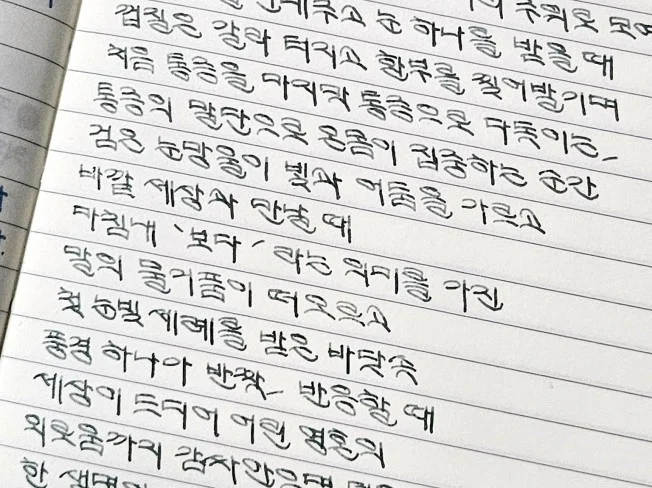 눈 하나를 받을 때
껍질은 갈라 터지고 환부를 찢어발기며
처음 통증을 마지막 통증으로 다독이는_
통증의 말단으로 온몸이 집중하는 순간
검은 눈망울이 빛과 어둠을 가르고
바깥 세상과 만날 때
마침내 '보다' 라는 의미를 가진
말의 물거품이 떠오르고
첫 눈빛 세례를 받은 바닷속
풍경 하나가 반짝_ 반응할 때
세상이 드디어 어린 영혼의
외로움까지 감싸안으며
한